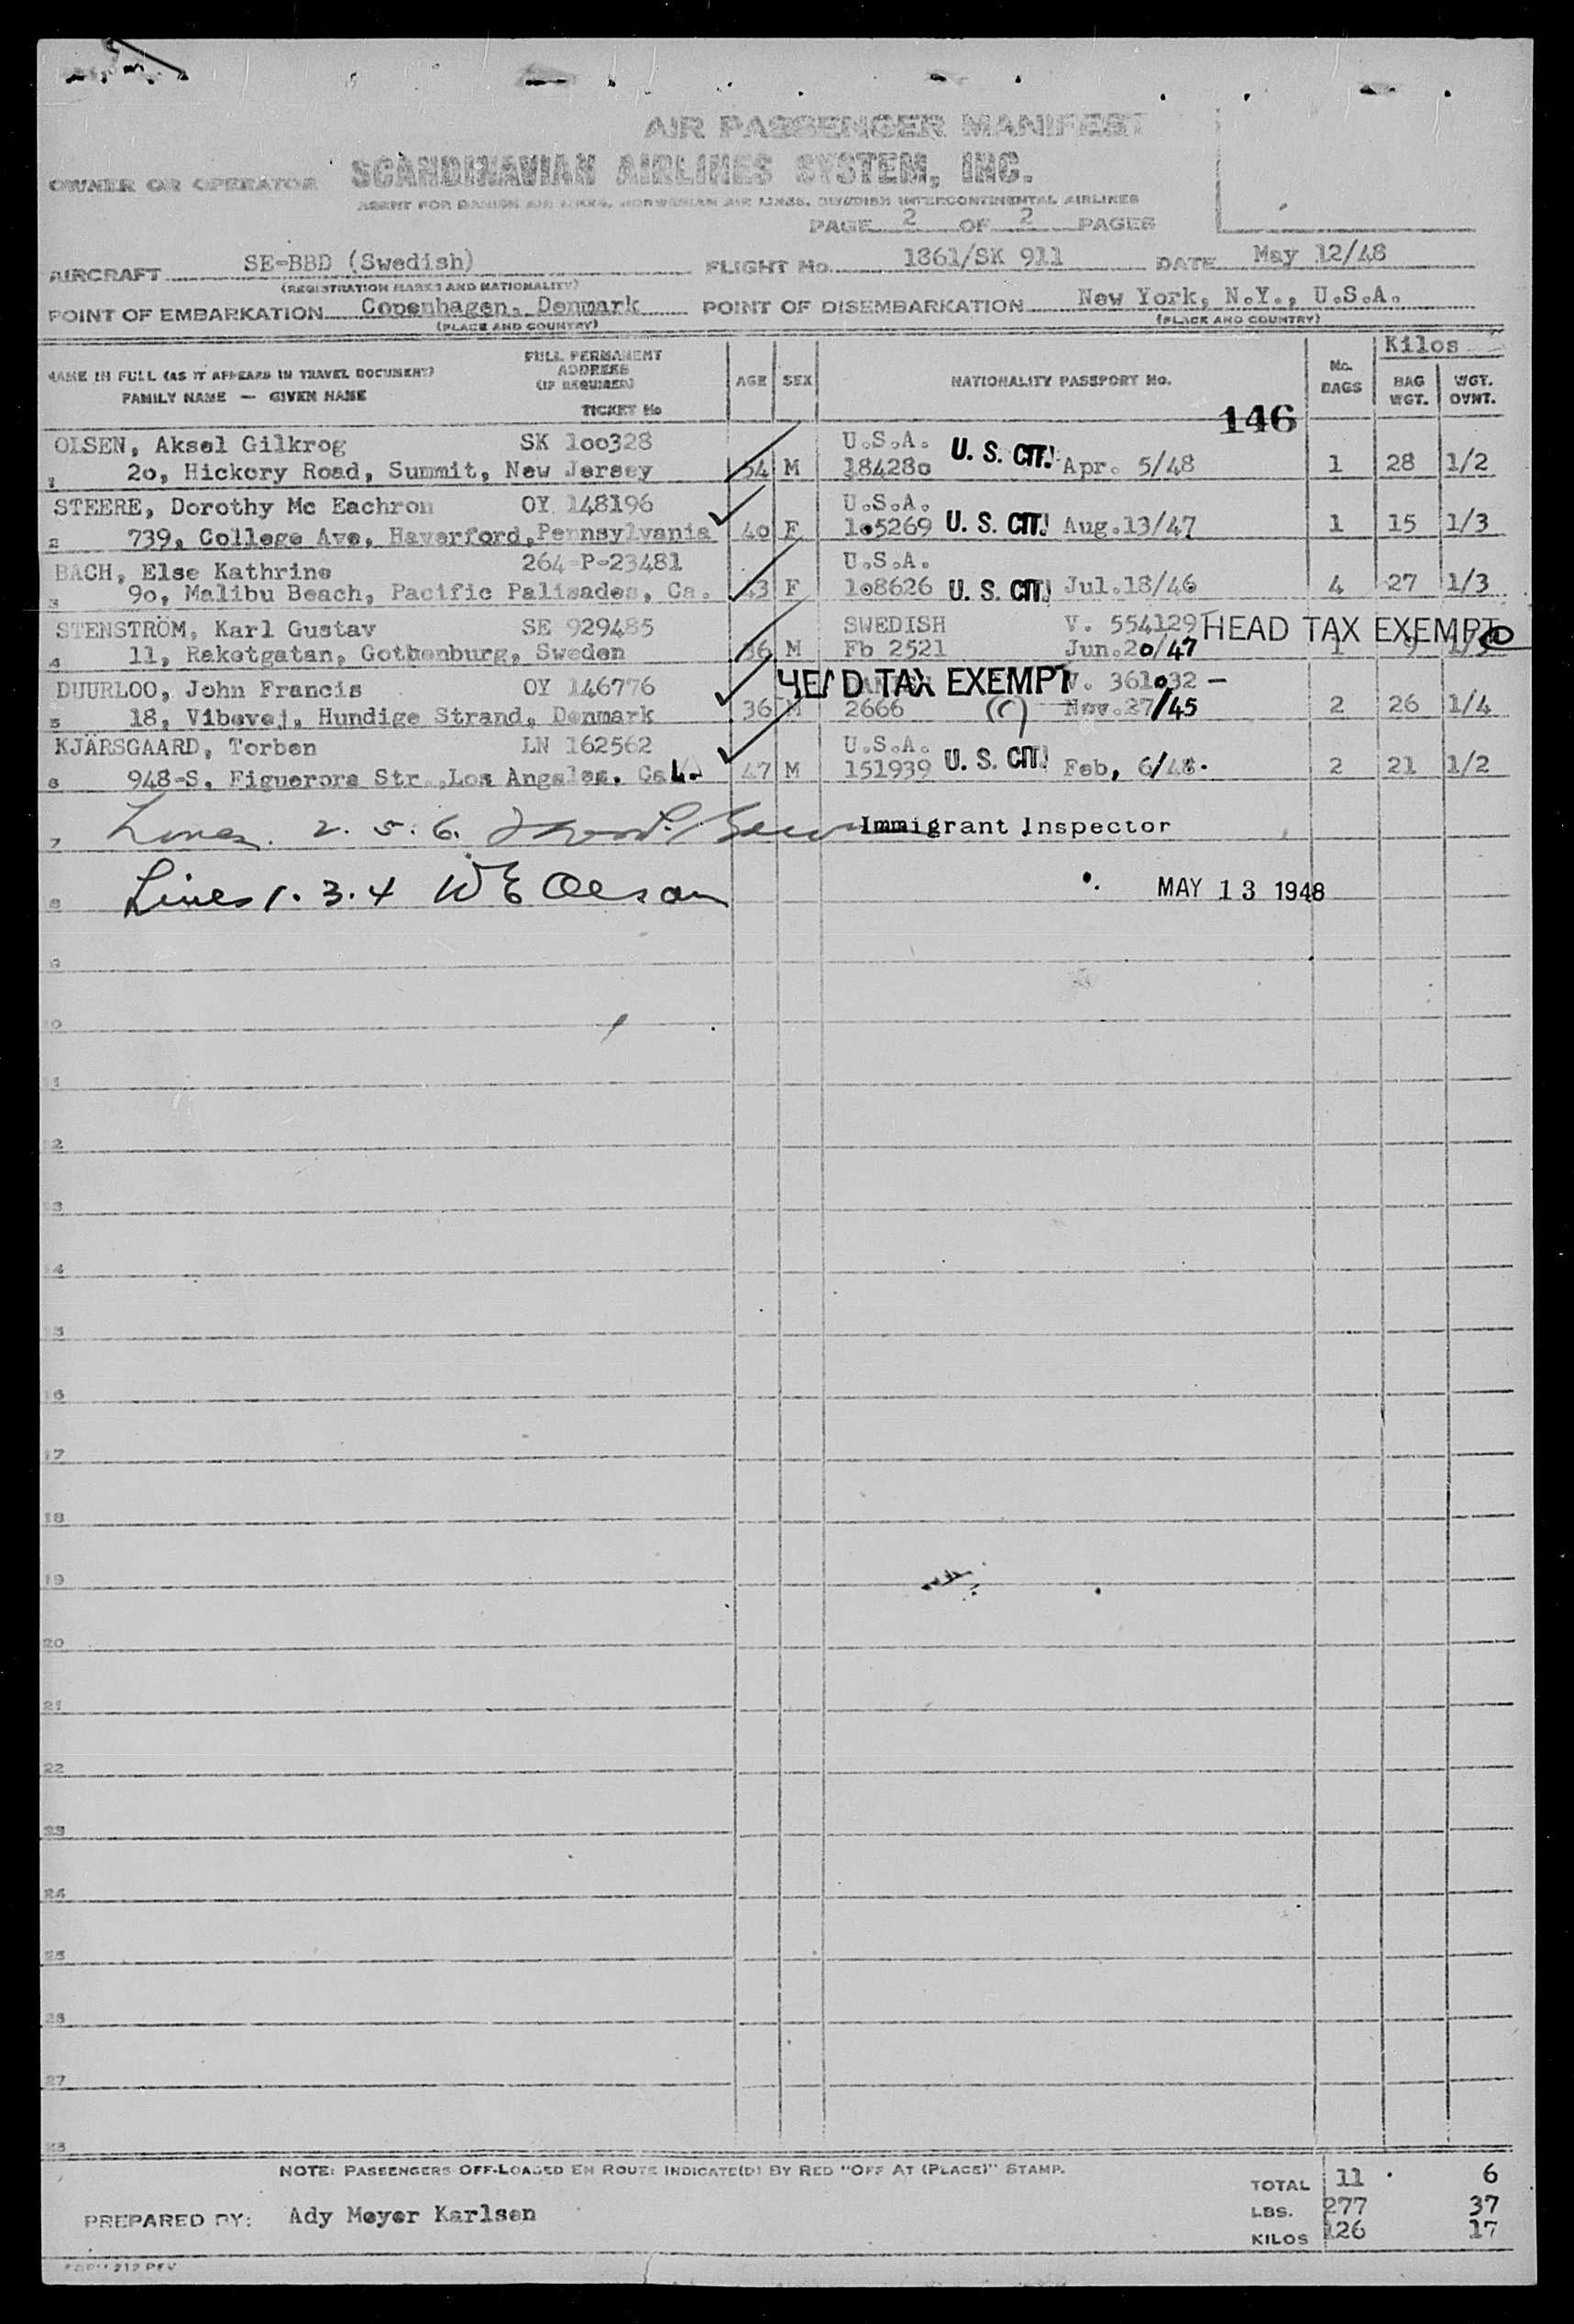 AIR PASSENGER MANIFEST
OWNER OR OPERATOR SCANDINAVIAN AIRLINES SYSTEM, INC.
AGENT FOR DANISH AIR LINES, NORWEGIAN AIR LINES, SWEDISH INTERCONTINENTAL AIRLINES
PAGE 2 OF 2 PAGES
AIRCRAFT SE-BBD (Swedish) FLIGHT No. 1861/SK 911 DATE May 12/48
(REGISTRATION MARKS AND NATIONALITY)
POINT OF EMBARKATION Copenhagen, Denmark POINT OF DISEMBARKATION New York, N.Y., U.S.A.
(PLACE AND COUNTRY) (PLACE AND COUNTRY)
NAME IN FULL (AS IT APPEARS IN TRAVEL DOCUMENT) FAMILY NAME — GIVEN NAME
FULL PERMANENT ADDRESS (IF REQUIRED) TICKET No
AGE SEX NATIONALITY PASSPORT No. No. BAGS Kilos BAG WGT. WGT. OVNT.
146
OLSEN, Aksel Gilkrog SK 100328 U.S.A.
1 20, Hickory Road, Summit, New Jersey 54 M 184280 U. S. CIT. Apr. 5/48 1 28 1/2
STEERE, Dorothy Mc Eachron OY 148196 U.S.A.
2 739, College Ave, Haverford, Pennsylvania 40 F 105269 U. S. CIT. Aug.13/47 1 15 1/3
BACH, Else Kathrine 264-P-23481 U.S.A.
3 90, Malibu Beach, Pacific Palisades, Ca. 43 F 108626 U. S. CIT. Jul.18/46 4 27 1/3
STENSTRÖM, Karl Gustav SE 929485 SWEDISH V. 554129 HEAD TAX EXEMPT
4 11, Raketgatan, Gothenburg, Sweden 36 M Fb 2521 Jun.20/47 1 9 1/3
DUURLOO, John Francis OY 146776 HEAD TAX EXEMPT V. 361032 -
5 18, Vibevej, Hundige Strand, Denmark 36 M 2666 (C) Nov.27/45 2 26 1/4
KJÄRSGAARD, Torben LN 162562 U.S.A.
6 948-S. Figuerora Str., Los Angeles. Cal. 47 M 151939 U. S. CIT. Feb, 6/48. 2 21 1/2
7 Lines. 2. 5. 6. Immigrant Inspector
8 Lines 1. 3. 4 W E Olesan MAY 13 1948
9
10
11
12
13
14
15
16
17
18
19
20
21
22
23
24
25
26
27
28
NOTE: PASSENGERS OFF-LOADED EN ROUTE INDICATE(D) BY RED "OFF AT (PLACE)" STAMP.
TOTAL 11 6
LBS. 277 37
PREPARED BY: Ady Meyer Karlsen
KILOS 126 17
FORM 212 REV